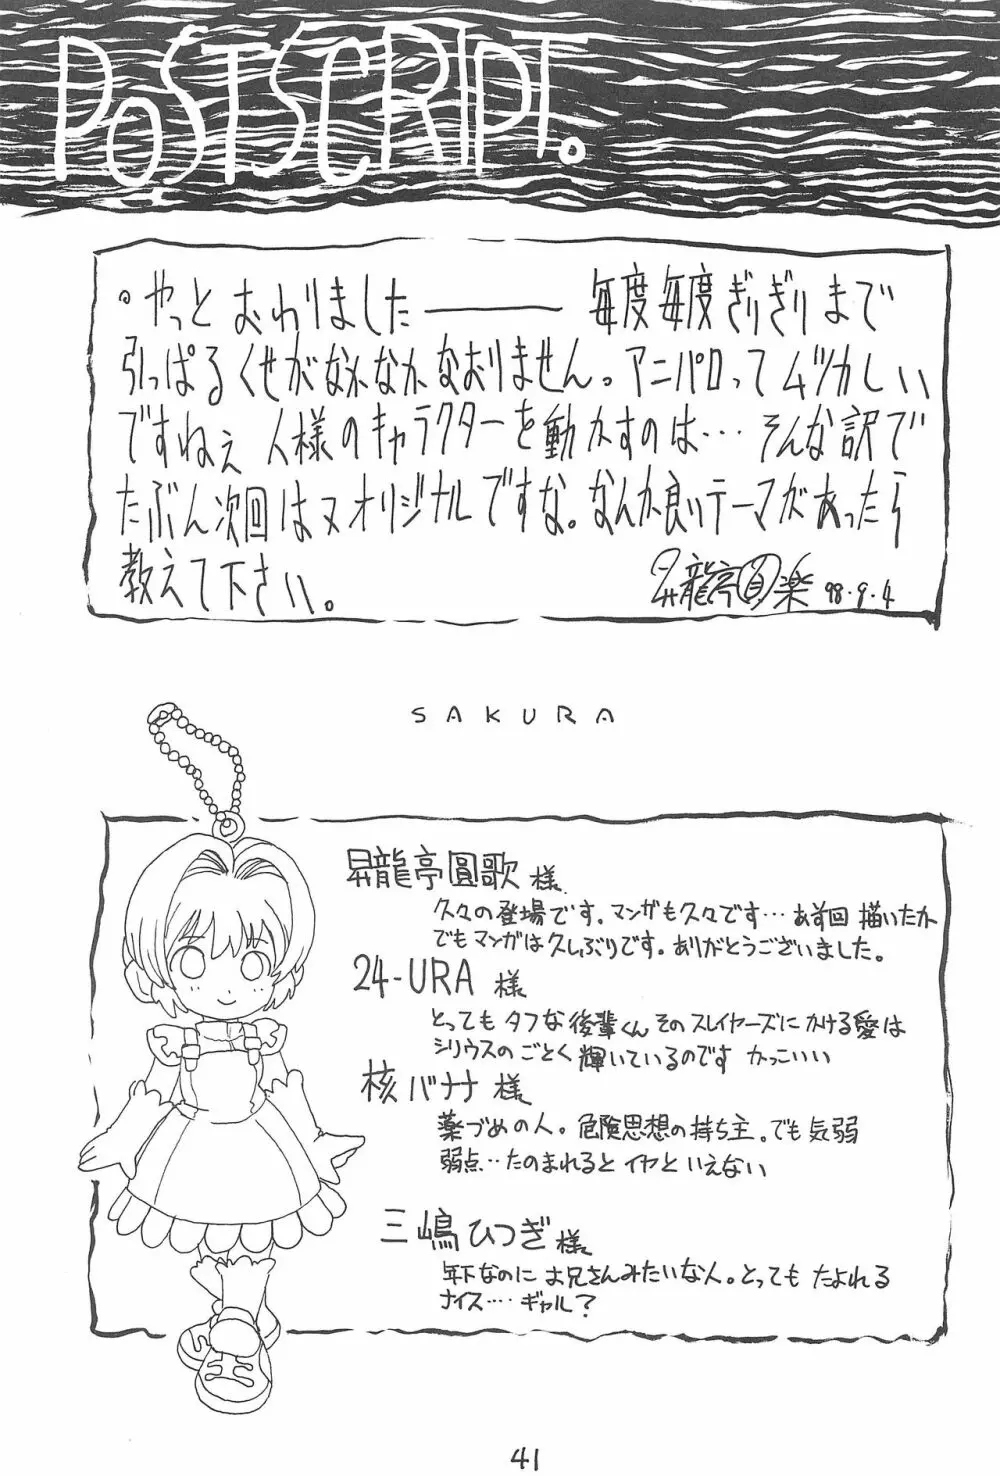 POSTSCRIPT.
・やっと おわりました―― 毎度毎度ぎりぎりまで
引っぱるくせがなかなかなおりません。アニパロってムヅカしい
ですねぇ 人様のキャラクターを動かすのは… そんな訳で
たぶん次回はヌオリジナルですな。なんか良いテーマがあったら
教えて下さい。
昇龍亭圓楽 98.9.4
SAKURA
昇龍亭圓歌 様
久々の登場です。マンガも久々です… 前回 描いたか
でもマンガは久しぶりです。ありがとうございました。
24-URA 様
とっても タフな後輩くん そのスレイヤーズに かける愛は
シリウスの ごとく 輝いているのです かっこいい
核バナナ 様
薬づめの人。危険思想の持ち主。でも気弱
弱点… たのまれると イヤと いえない
三嶋ひつぎ様
年下なのに お兄さんみたいな人。とっても たよれる
ナイス… ギャル?
41